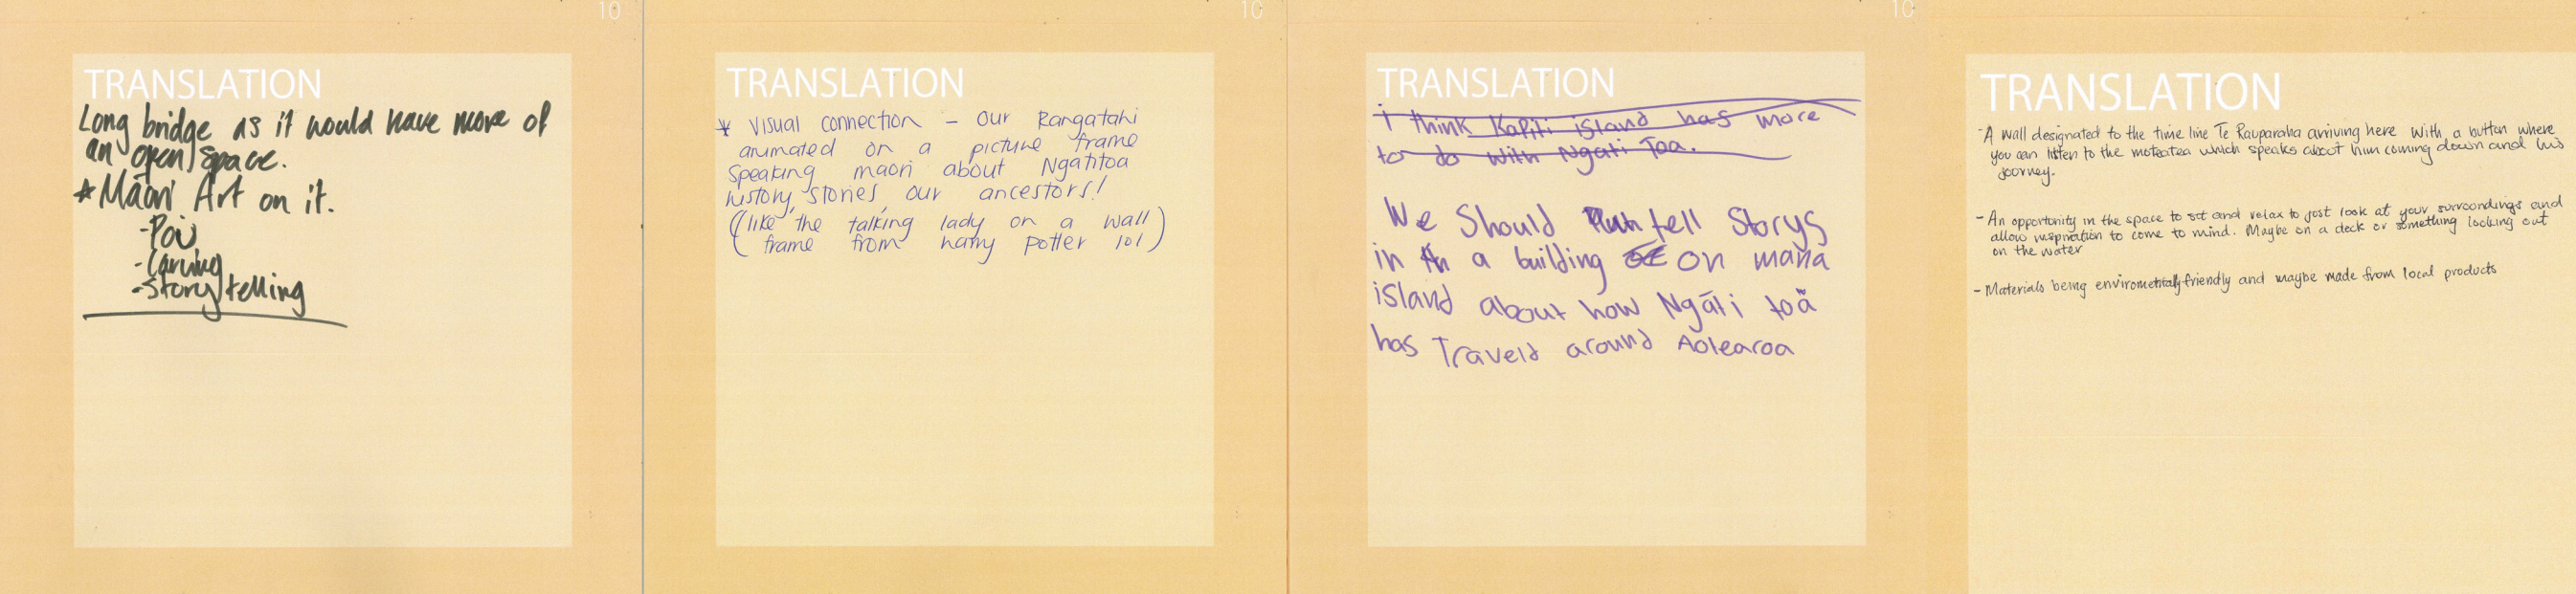 10
TRANSLATION
Long bridge as it would have more of
an open space.
* Māori Art on it.
- Poi
- Carving
- Story telling
10
TRANSLATION
* Visual connection - our Rangatahi
animated on a picture frame
speaking maori about Ngatitoa
history, stories, our ancestors!
(like the talking lady on a wall
frame from harry potter lol)
10
TRANSLATION
i think Kapiti island has more
to do with Ngati Toa.
We Should tell Storys
in a building on mana
island about how Ngāti toā
has Traveld around Aotearoa
TRANSLATION
- A wall designated to the time line Te Rauparaha arriving here with a button where
you can listen to the moteatea which speaks about him coming down and his
journey.
- An opportunity in the space to sit and relax to just look at your surroundings and
allow inspiration to come to mind. Maybe on a deck or something looking out
on the water
- Materials being friendly and maybe made from local products